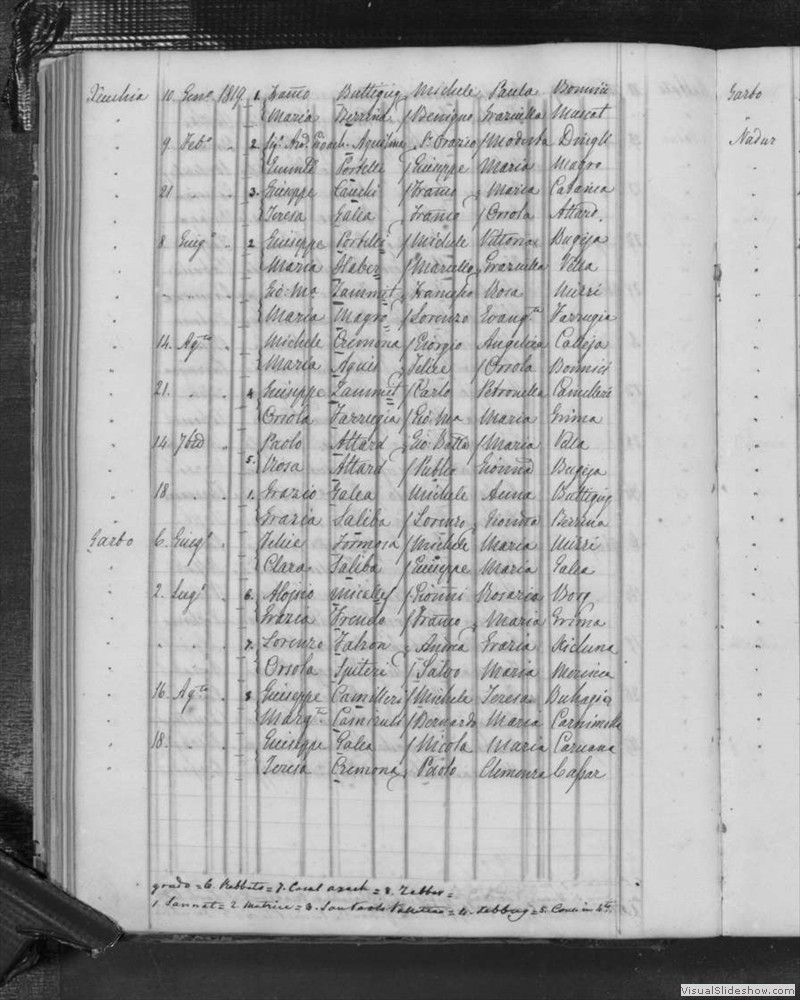 Xeuchia 10. Genº 1819. 1. Franco Buttigieg Michele Paula Bonnici Garbo
Maria Berrina Benigno Graziella Muscat
9. Febº 2. Aquilina Sr. Orazio Modesta Dingli Nadur
Portelli Giuseppe Maria Magro
21 3. Giuseppe Cauchi Franco Maria Catania
Teresa Galea Franco Orsola Attard.
8. Giugº 2. Giuseppe Portelli Michele Vittoria Bugeja
Maria Haber Marcello Graziella Vella
Gio. Ma Zammit Francesco Rosa Mizzi
Maria Magro Lorenzo Evangta Farrugia
14. Agto Michele Cremona Giorgio Angelica Calleja
Maria Agius Felice Orsola Bonnici
21. 4. Giuseppe Zammit Carlo Petronella Camilleri
Orsola Farrugia Gio Ma Maria Grima
14 7bre Paolo Attard Gio Batta Maria Vella
5. Rosa Attard Publio Gionna Bugeja
18. 1. Grazio Galea Michele Anna Buttigieg
Grazia Saliba Lorenzo Berrina
Garbo 6. Giugº Felice Formosa Michele Maria Mizzi
Clara Saliba Giuseppe Maria Galea
2. Lugº 6. Aloisio Micallef Gionni Rosaria Borg
Grazia Frendo Franco Maria Grima
7. Lorenzo Falzon Andrea Grazia Xicluna
Orsola Spiteri Salvo Maria
16. Agto 8. Giuseppe Camilleri Michele Teresa Buhagiar
Margta Camenzuli Bernardo Maria
18. Giuseppe Galea Nicola Maria Caruana
Teresa Cremona Paolo Clemenza Cassar
grado = 6. Rabbato = 7. Casal = 8. Zebbar =
1. Sannat = 2. Matrice = 3. = 4. Zebbug = 5.
VisualSlideshow.com